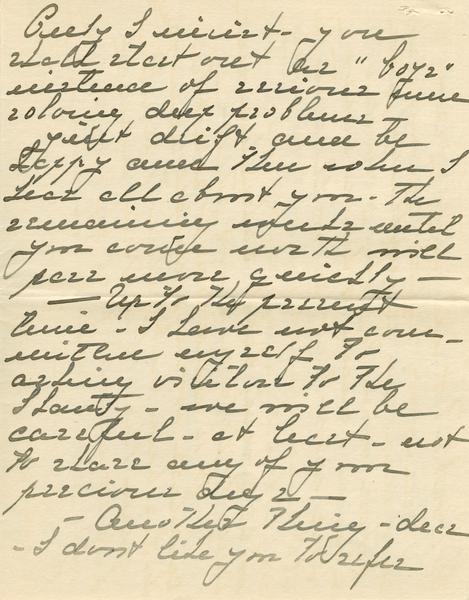 Only I insist - you
shall start out as "boys"
instead of serious June
solving deep problems -
just drift and be
happy and then when I
hear all about you - the
remaining weeks until
you come north will
pass more quickly -
- Up to the present
time - I have not com-
mitted myself to
asking visitors to the
Shanty - we will be
careful - at least - not
to share any of your
precious days -
- Another thing - dear
- I don't like you to refer